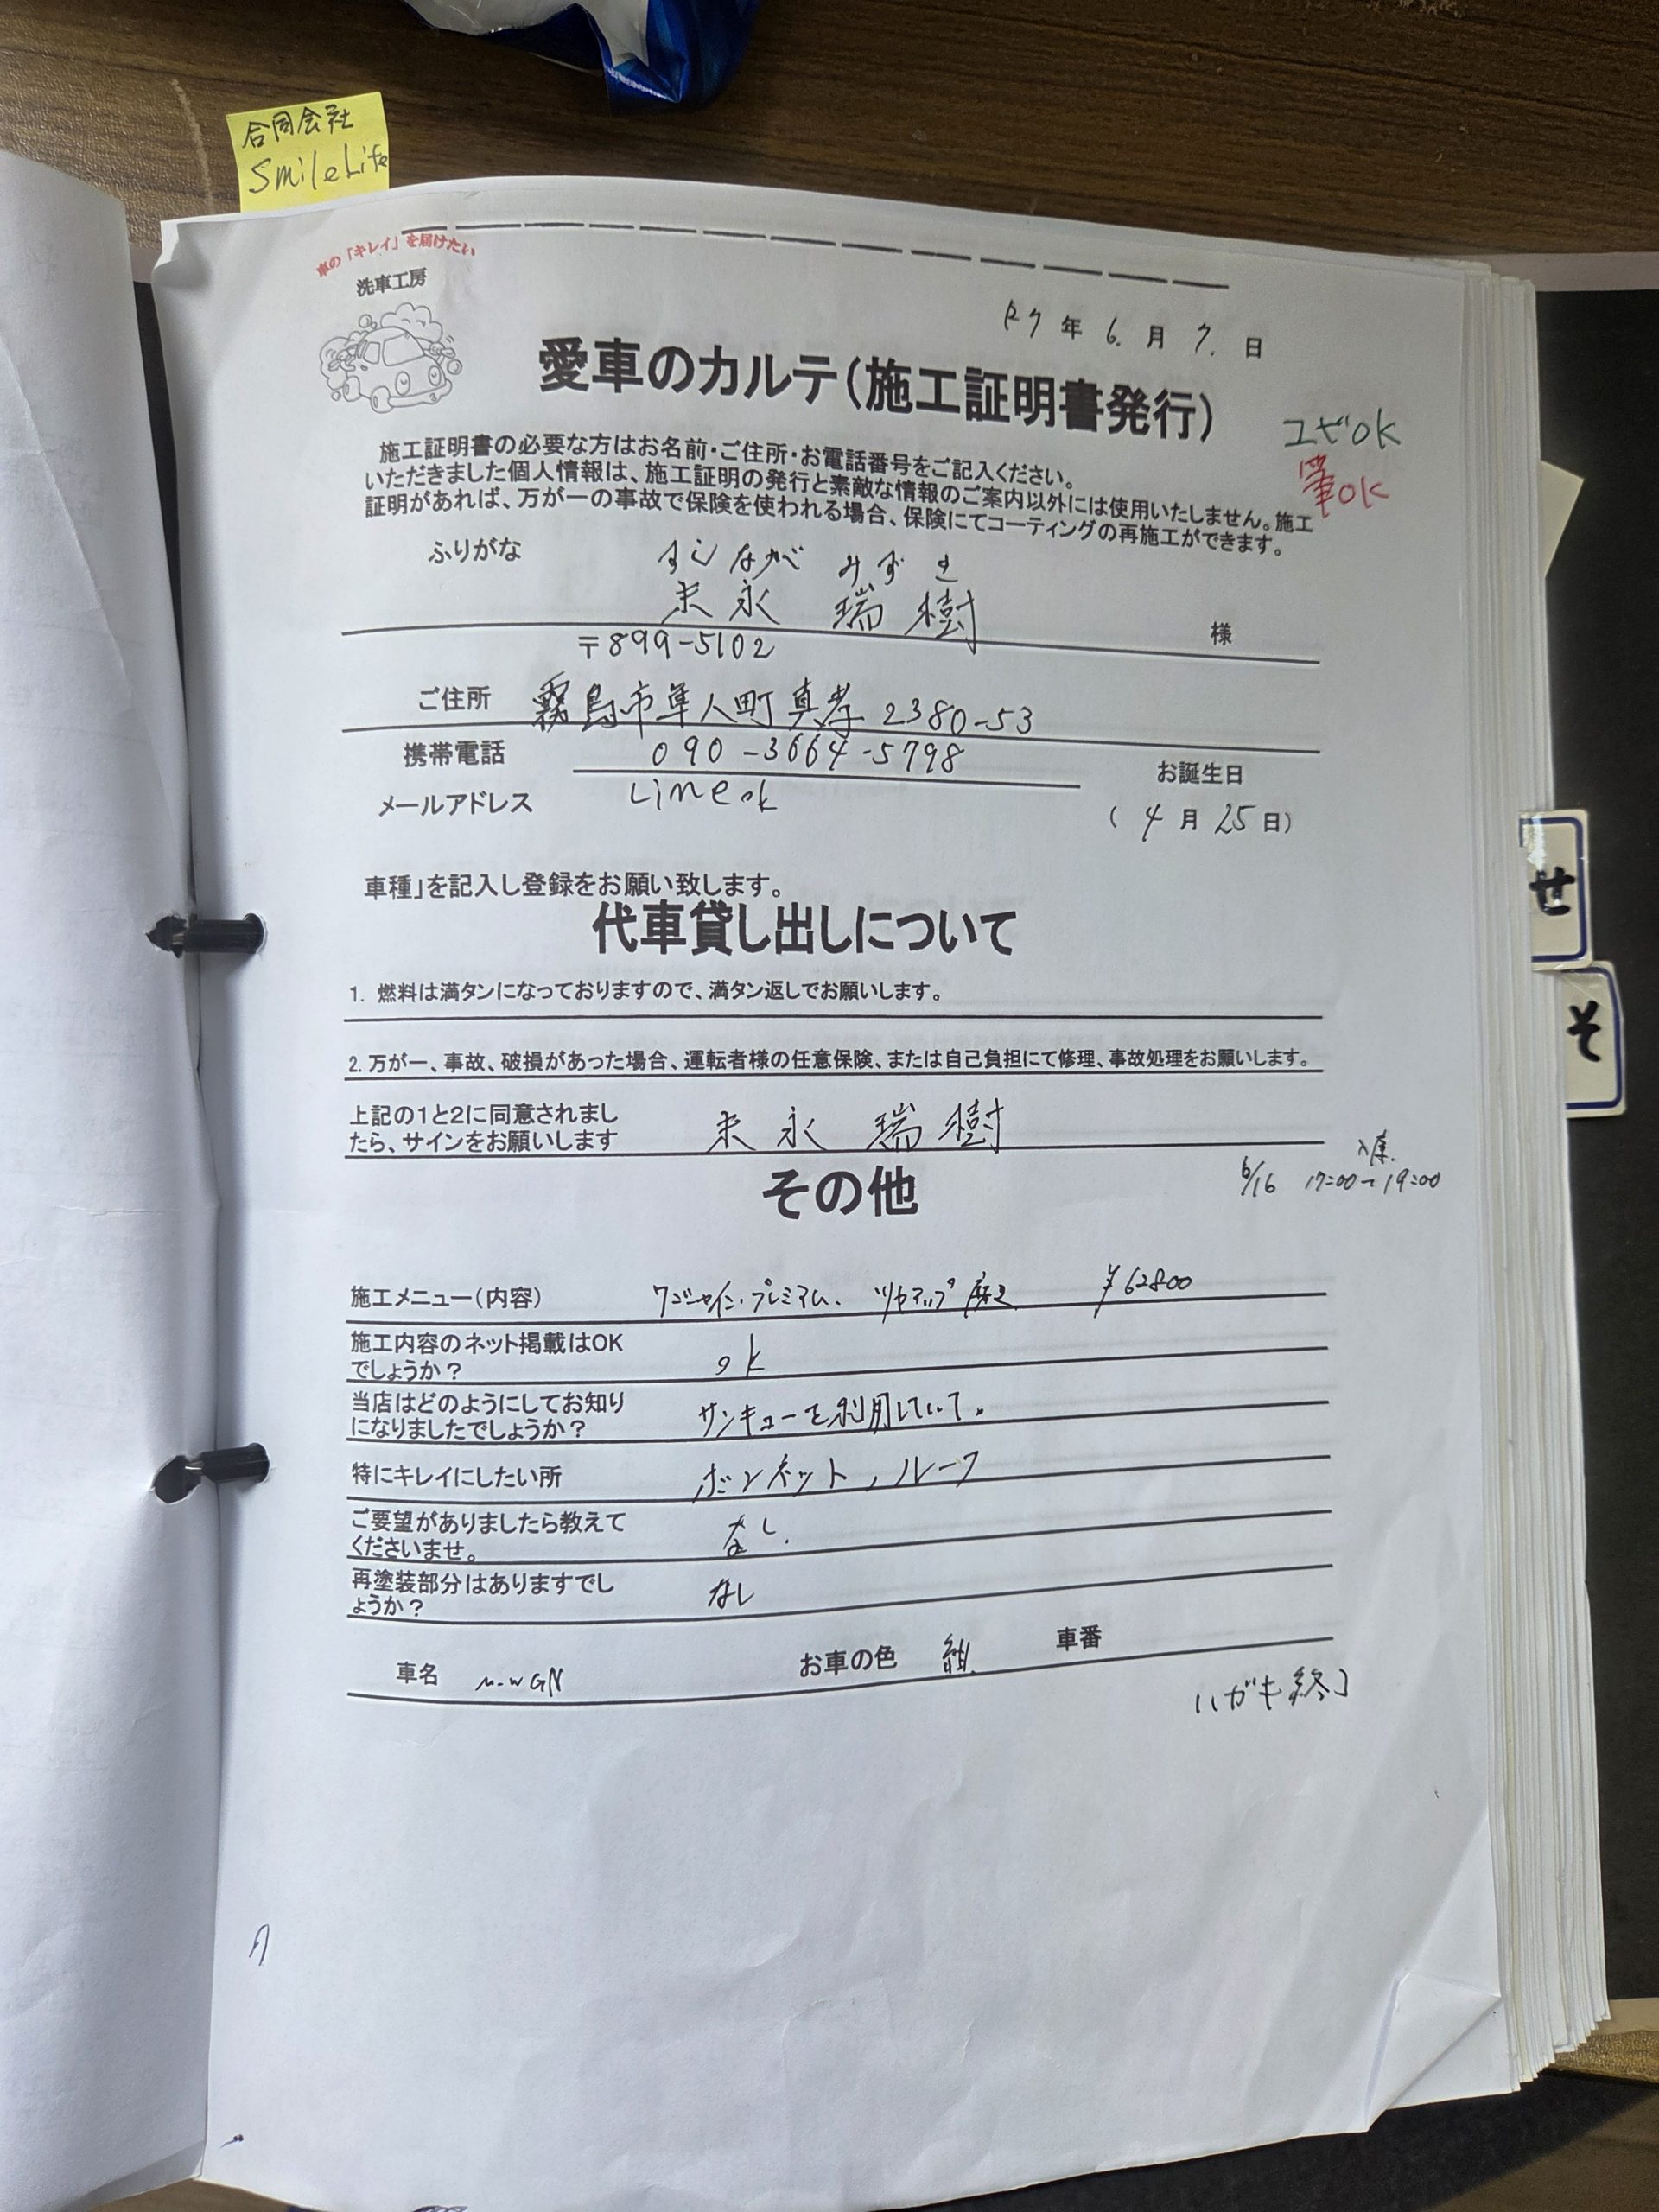 合同会社
SmileLife
車の「キレイ」を届けたい
洗車工房
R7年 6.月 7.日
愛車のカルテ(施工証明書発行)
ユゼOK
筆OK
施工証明書の必要な方はお名前・ご住所・お電話番号をご記入ください。
いただきました個人情報は、施工証明の発行と素敵な情報のご案内以外には使用いたしません。施工
証明があれば、万が一の事故で保険を使われる場合、保険にてコーティングの再施工ができます。
ふりがな すえなが みずき
末永 瑞樹 様
〒899-5102
ご住所 霧島市隼人町真孝2380-53
携帯電話 090-3664-5798
お誕生日
メールアドレス Lineok
(4月25日)
車種」を記入し登録をお願い致します。
せ
代車貸し出しについて
1. 燃料は満タンになっておりますので、満タン返しでお願いします。
そ
2. 万が一、事故、破損があった場合、運転者様の任意保険、または自己負担にて修理、事故処理をお願いします。
上記の1と2に同意されまし
たら、サインをお願いします 末永 瑞樹
入庫.
6/16 17:00~19:00
その他
施工メニュー(内容) プレミアム、ツヤアップ磨き ¥62800
施工内容のネット掲載はOK
でしょうか? ok
当店はどのようにしてお知り
になりましたでしょうか? サンキューを利用していて。
特にキレイにしたい所 ボンネット,ルーフ
ご要望がありましたら教えて
くださいませ。 なし.
再塗装部分はありますでし
ょうか? なし
車名 N-WGN お車の色 紺. 車番
ハガキ終了